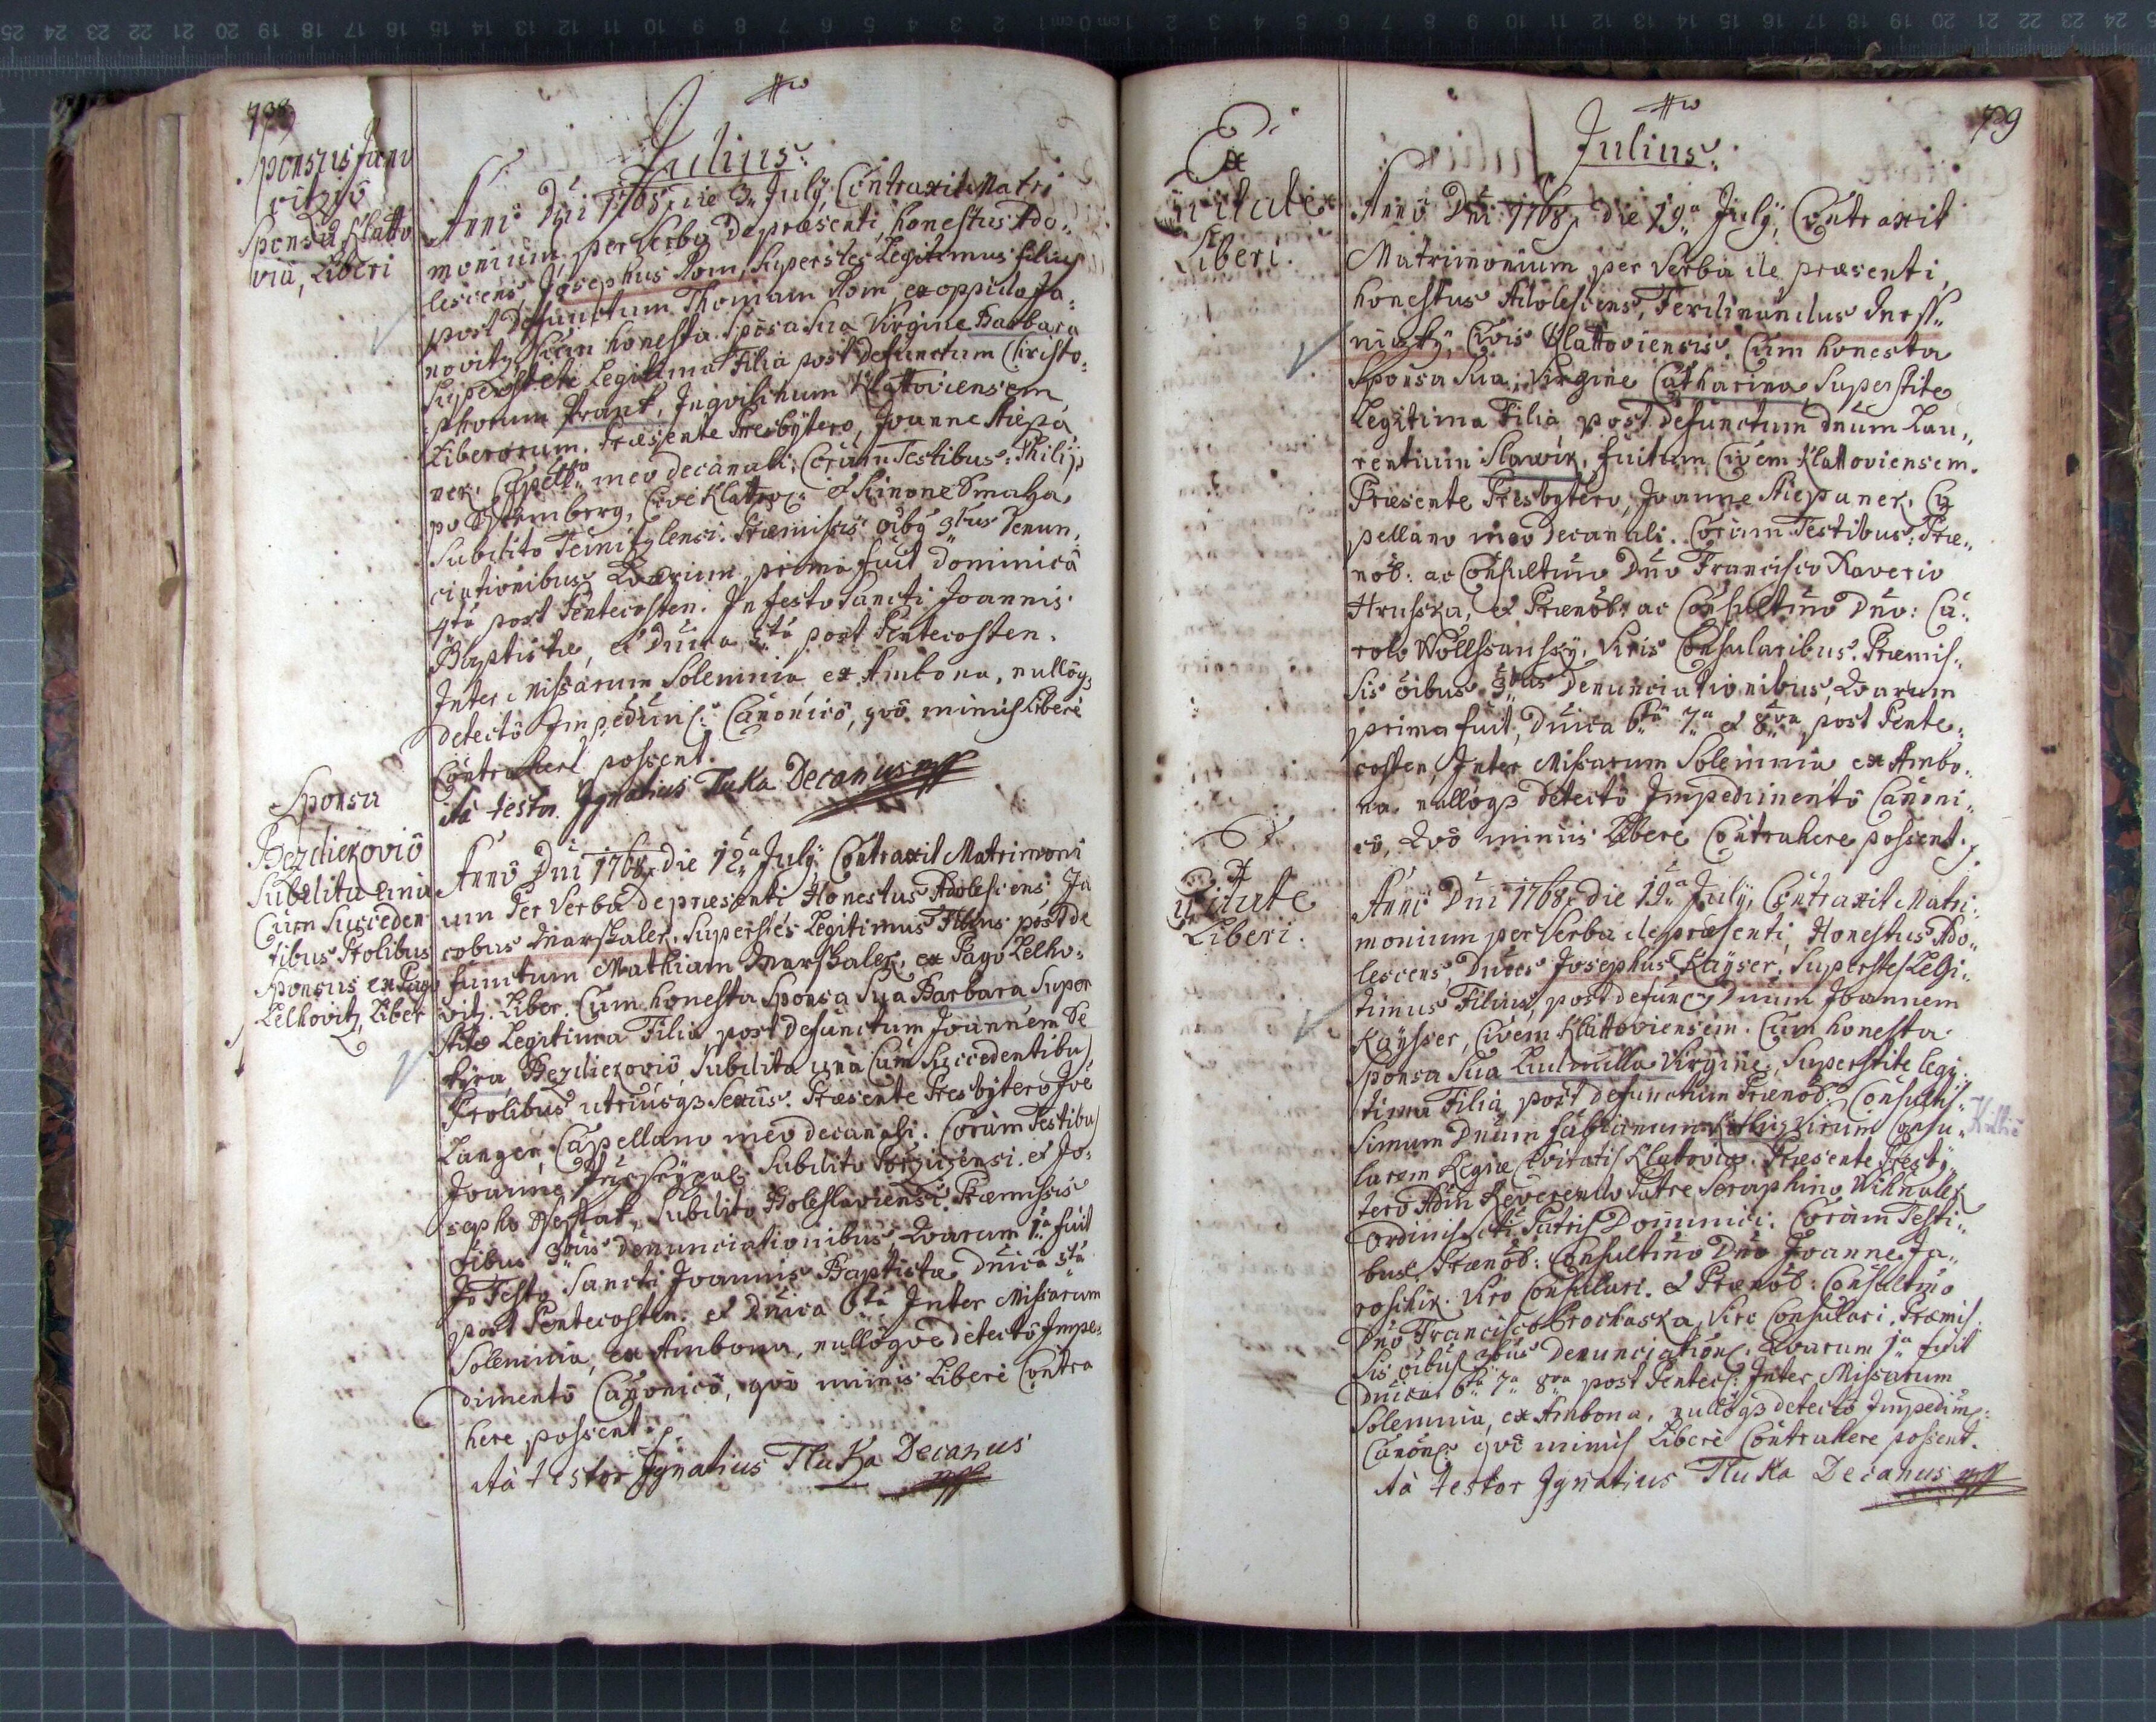 Julius.
Sponsus Jano
vitzio
Sponsa Klatto
via, Liberi
Anno Dni 1768, die 3. July, Contraxit Matri
monium, per Verba de præsenti, honestus Ado„
lescens, Josephus Dom, Superstes Legitimus filius
post defunctum Thomam Dom, ex oppido Ja„
novitz, Cum honesta Sponsa Sua Virgine Barbara
Superstite Legitima Filia post defunctum Christo„
phorum Prant, Inqvilinum Klattoviensem,
Liberorum. Præsente Presbytero, Joanne Stiepa
nek, Capell: meo decanali; Coram Testibus: Philip
po Sternberg, Cive Klattov: et Simone Smaha,
Subdito Præmissis oibus 3bus Denun„
ciationibus, Qvarum prima fuit Dominica
4ta post Pentecosten. In festo Sancti Joannis
Baptistæ, et Dnica 5ta post Pentecosten.
Inter Missarum Solemnia ex Ambona, nulloqz
detecto Impedim: Canonico, qvo minus Libere
Contrahere possent.
Ita testor Ignatius Tluka Decanus mpp
Sponsa
Bezdiekovio
Subdita una
Cum Succeden
tibus Prolibus
Sponsus ex Pago
Lelkovitz, Liber
Anno Dni 1768, die 12a July, Contraxit Matrimoni
um Per Verba de præsenti Honestus Adolescens Ja
cobus Marskalek, Superstes Legitimus Filius post de
functum Mathiam Marskalek, ex Pago Lelko„
vitz. Liber. Cum honesta Sponsa Sua Barbara Super
stite Legitima Filia, post defunctum Joannem Se
kyra Bezdiekovio, Subdita una Cum Succedentibus
Prolibus utriusqz Sexus. Præsente Presbytero Joe
Langer, Capellano meo decanali. Coram Testibus
Joanne Subdito et Jo„
sepho Subdito Præmissis
oibus 3bus denunciationibus, Qvarum 1a fuit
In Festo Sancti Joannis Baptistæ, Dnica 5ta
post Pentecosten. et Dnica 6ta Inter Missarum
Solemnia, ex Ambona, nulloqve detecto Impe„
dimento Canonico, qvo minus Libere Contra
here possent.
Ita testor Ignatius Tluka Decanus mpp
79
Julius.
Ex
Civitate
Liberi.
Anno Dni 1768, die 19a July, Contraxit
Matrimonium per Verba de præsenti,
honestus Adolescens, Ferdinandus
Civis Klattoviensis. Cum honesta
Sponsa Sua, Virgine Catharina, Superstite
Legitima Filia post defunctum Dnum Lau„
rentium Slawik, fuitum Civem Klattoviensem.
Præsente Presbytero, Joanne Stiepanek, Ca
pellano meo Decanali. Coram Testibus: Præ„
nob: ac Consultmo Dno Francisco Xaverio
Hruska, et Prænob: ac Consultmo Dno: Ca„
rolo Wollssansky, Viris Consularibus. Præmis„
sis oibus 3bus Denunciationibus, Qvarum
prima fuit, Dnica 6ta 7a et 8va post Pente„
costen, Inter Missarum Solemnia ex Ambo„
na nulloqz detecto Impedimento Canoni„
co, Qvo minus Libere Contrahere possent.
Ex
Civitate
Liberi.
Anno Dni 1768, die 19a July, Contraxit Matri„
monium per Verba de præsenti, Honestus Ado„
lescens, Dnus Josephus Kayser, Superstes Legi„
timus Filius, post defunctum Dnum Joannem
Kaysser, Civem Klattoviensem. Cum honesta
Sponsa Sua Ludmilla Virgine, Superstite legi„
tima Filia, post defunctum Prænob: Consultis„
simum Dnum Fabianum Virum Consu„
larem Regiæ Civitatis Klatoviæ. Præsente Presby„
tero Adm Reverendo Patre Seraphino Wihnalek
Ordinis Scti Patris Dominici. Coram Testi„
bus, Prænob: Consultmo Dno Joanne Ja„
roschik. Viro Consulari. et Prænob: Consultmo
Dno Francisco Prochaska, Viro Consulari, Præmis„
sis oibus 3bus Denunciation: Qvarum 1a fuit
Dnica 6ta 7a 8va post Pentec: Inter Missarum
Solemnia, ex Ambona, nulloqz detecto Impedim:
Canon: qvo minus Libere Contrahere possent.
Ita testor Ignatius Tluka Decanus mpp